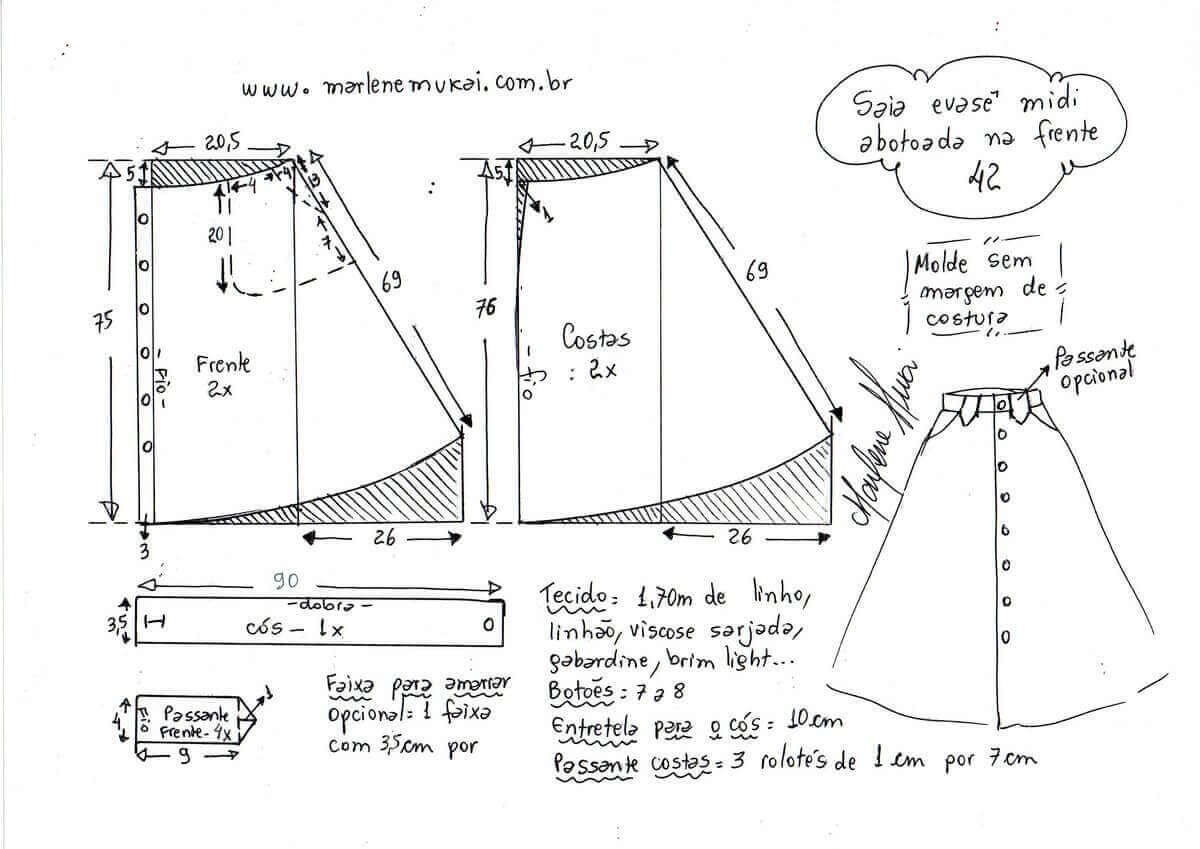 www.marlenemukai.com.br
Saia evasê midi
abotoada na frente
42
Molde sem
margem de
costura
20,5
5
4
4
3
7
20
69
75
Frente
2x
Fio
3
26
20,5
5
1
69
76
Costas
: 2x
Fio
26
Marlene Mukai
Passante
opcional
90
3,5
-dobra-
cós - 1x
4
Fio
Passante
Frente-4x
1
9
Faixa para amarrar
Opcional= 1 faixa
com 3,5cm por
Tecido= 1,70m de linho,
linhão, viscose sarjada,
gabardine, brim light...
Botões= 7 a 8
Entretela para o cós= 10cm
Passante costas= 3 rolotés de 1cm por 7cm